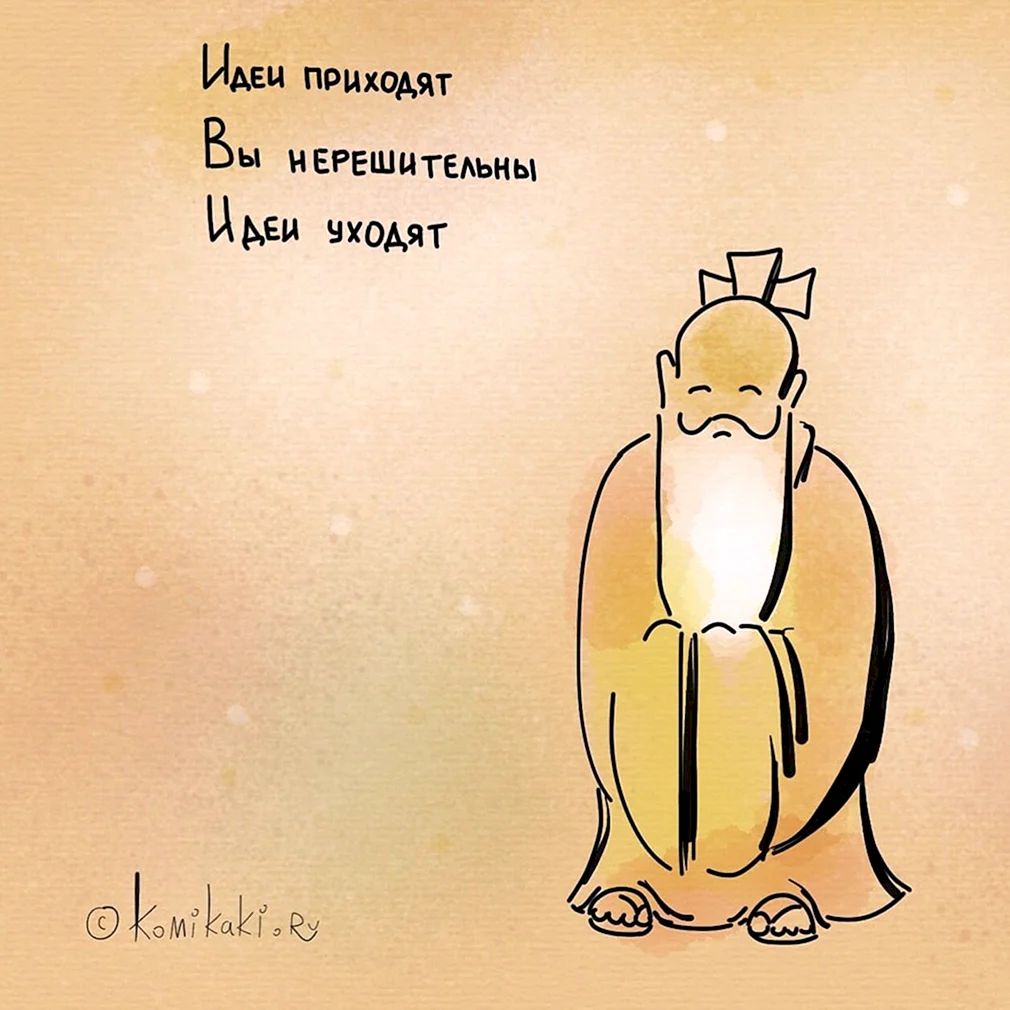 Идеи приходят
Вы нерешительны
Идеи уходят
© komikaki.Ru